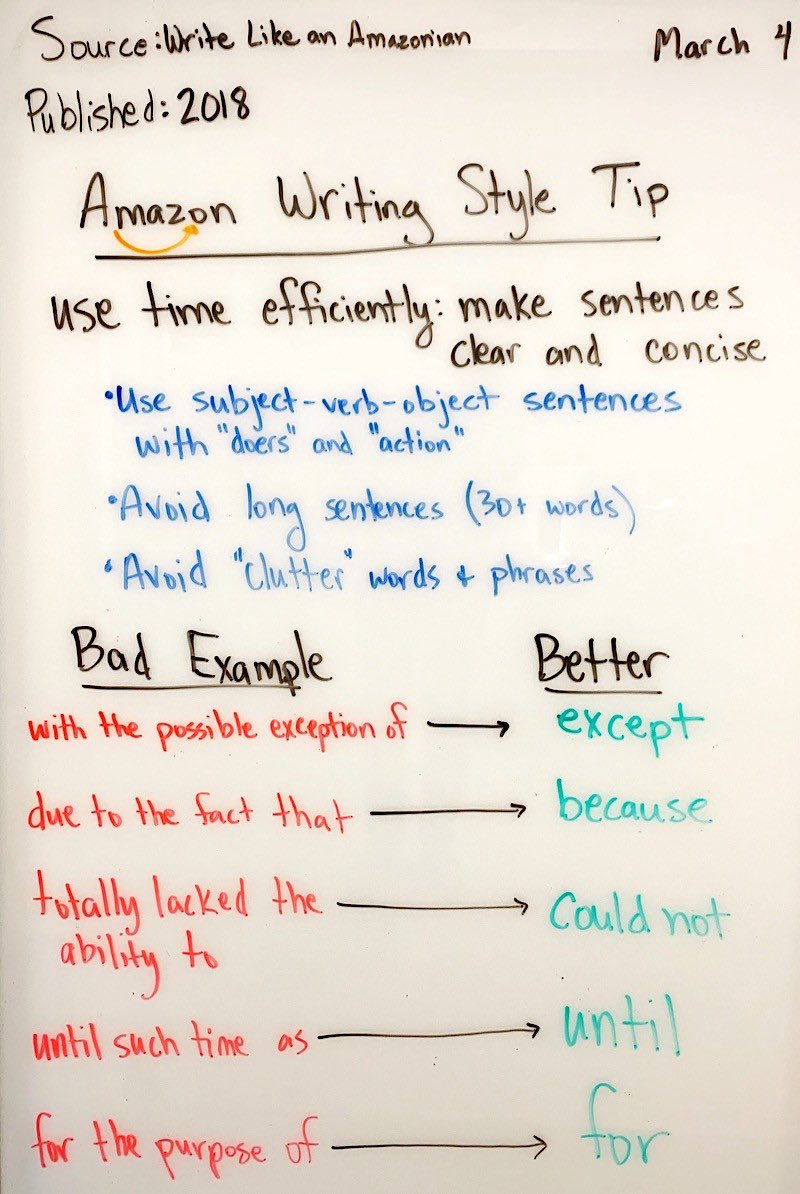 Source: Write Like an Amazonian
March 4
Published: 2018
Amazon Writing Style Tip
use time efficiently: make sentences
clear and concise
•Use subject-verb-object sentences
with "doers" and "action"
•Avoid long sentences (30+ words)
•Avoid "clutter" words + phrases
Bad Example
Better
with the possible exception of → except
due to the fact that → because
totally lacked the → could not
ability to
until such time as → until
for the purpose of → for